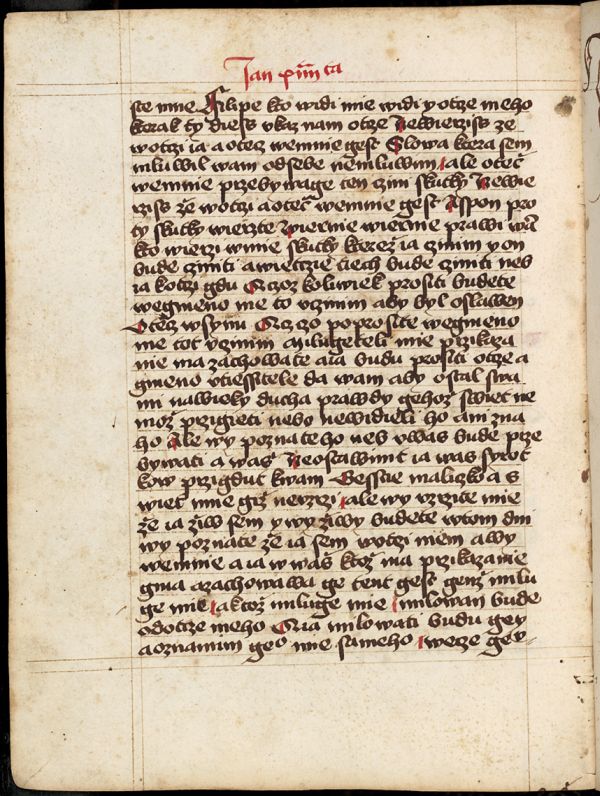 Jan xiiii ta
ste mne Filipe kto widi mie widi y otcze meho
kterak ty diess vkaz nam otcze Newierziss ze
wotczi ia a otecz wemne gest Slowa ktera sem
mluwil wam odsebe nemluwim ale otecz
wemnie przebywage ten czini skutky Newie
rziss ze wotczi a otecz wemnie gest Asspon pro
ty skutky wierzte Wiernie wiernie prawi wam
kto wierzi wmie skutky kterez ia czinim y on
bude cziniti a wietczie tiech bude cziniti neb
ia kotczi gdu A czoz koliwiek prositi budete
wegmeno me to vczinim aby byl oslawen
Otecz wsynu A czczo poprosite wegmeno
me tot vczinim Milugeteli mie przikaza
nie ma zachowate a ia budu prositi otcze a
gineno vtiessitele da wam aby ostal swa
mi nawieky ducha prawdy gehoz swiet ne
moz przigieti nebo newidieli ho ani zna
ho Ale wy poznateho neb vwas bude prze
bywati a was Neostawimt ia was syrot
kow przigdut kwam Gesstie maliczko a s
wiet mne giz nevzrzi ale wy vzrzite mie
ze ia ziw sem y wy ziwy budete wtom dni
wy poznate ze ia sem wotczi mem a wy
wemnie a ia w was ktoz ma przikazanie
gma a zachowawa ge tent gest genz milu
ge mie a ktoz miluge mie milowan bude
odotcze meho A ia milowati budu gey
a oznamim geo mne sameho wecze gey